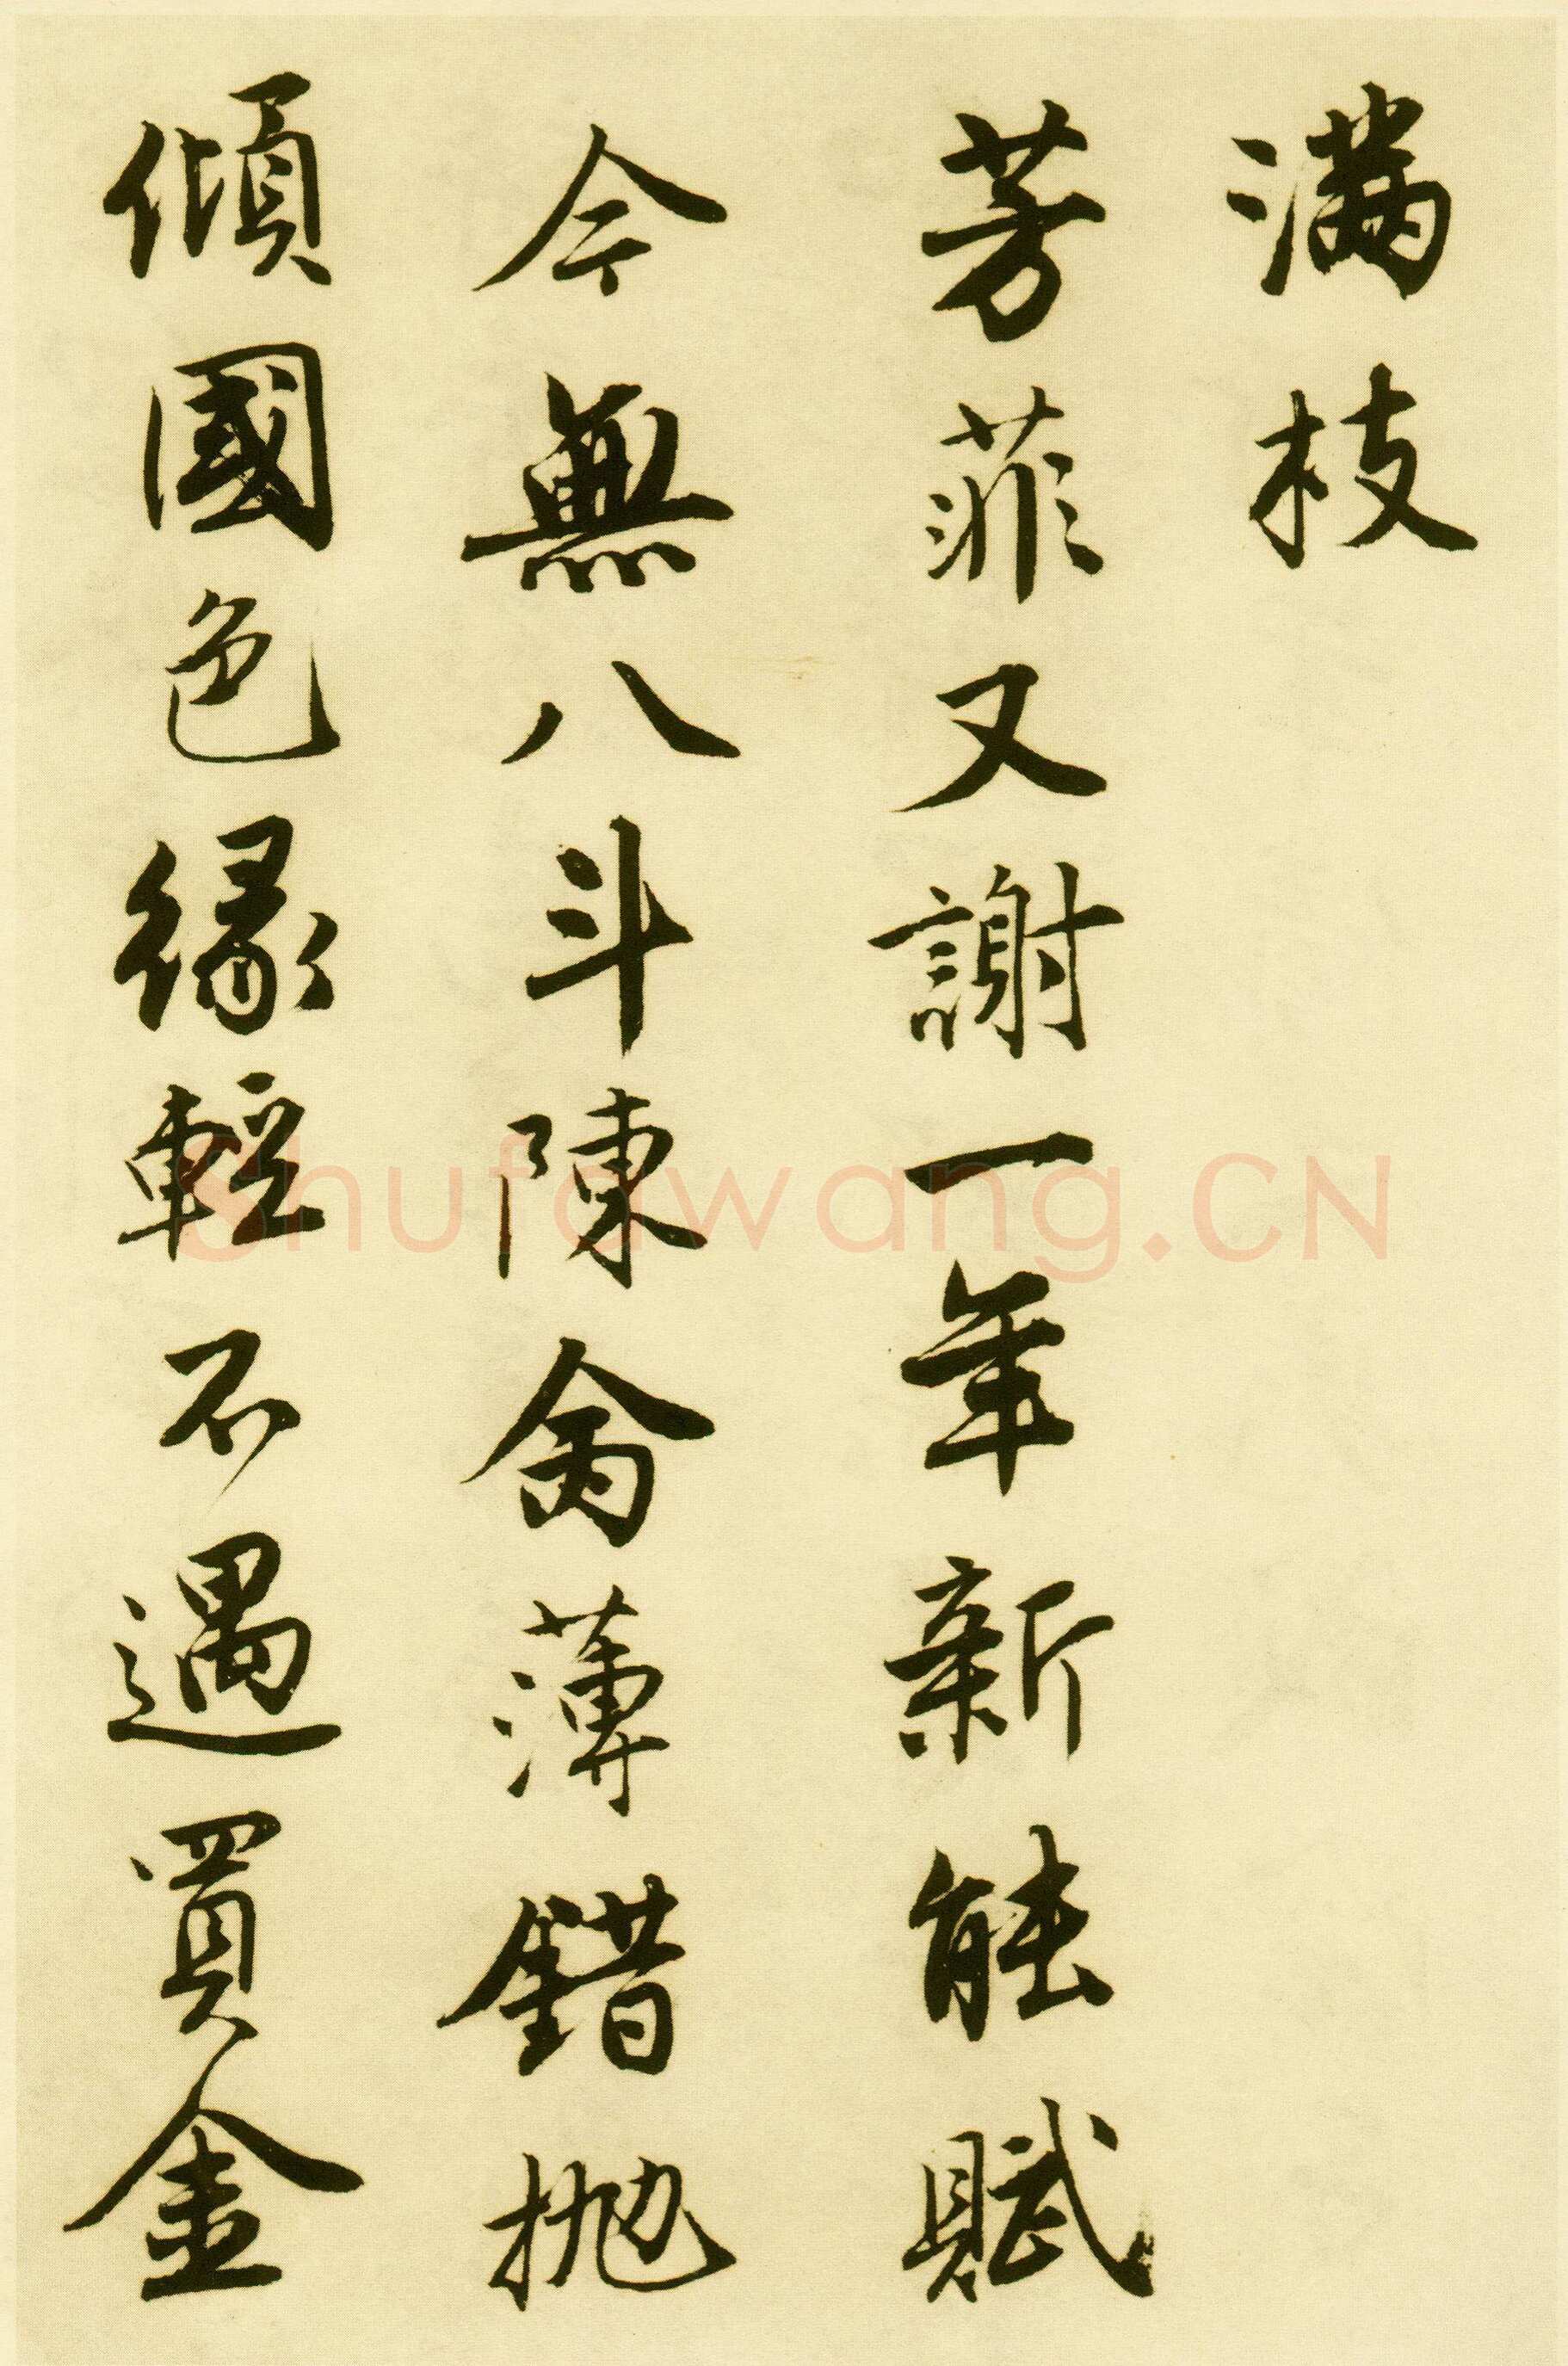 满枝
芳菲又謝一年新能賦
今無八斗陳禽薄錯抛
傾國色緣輕不遇買金
Shufawang.CN